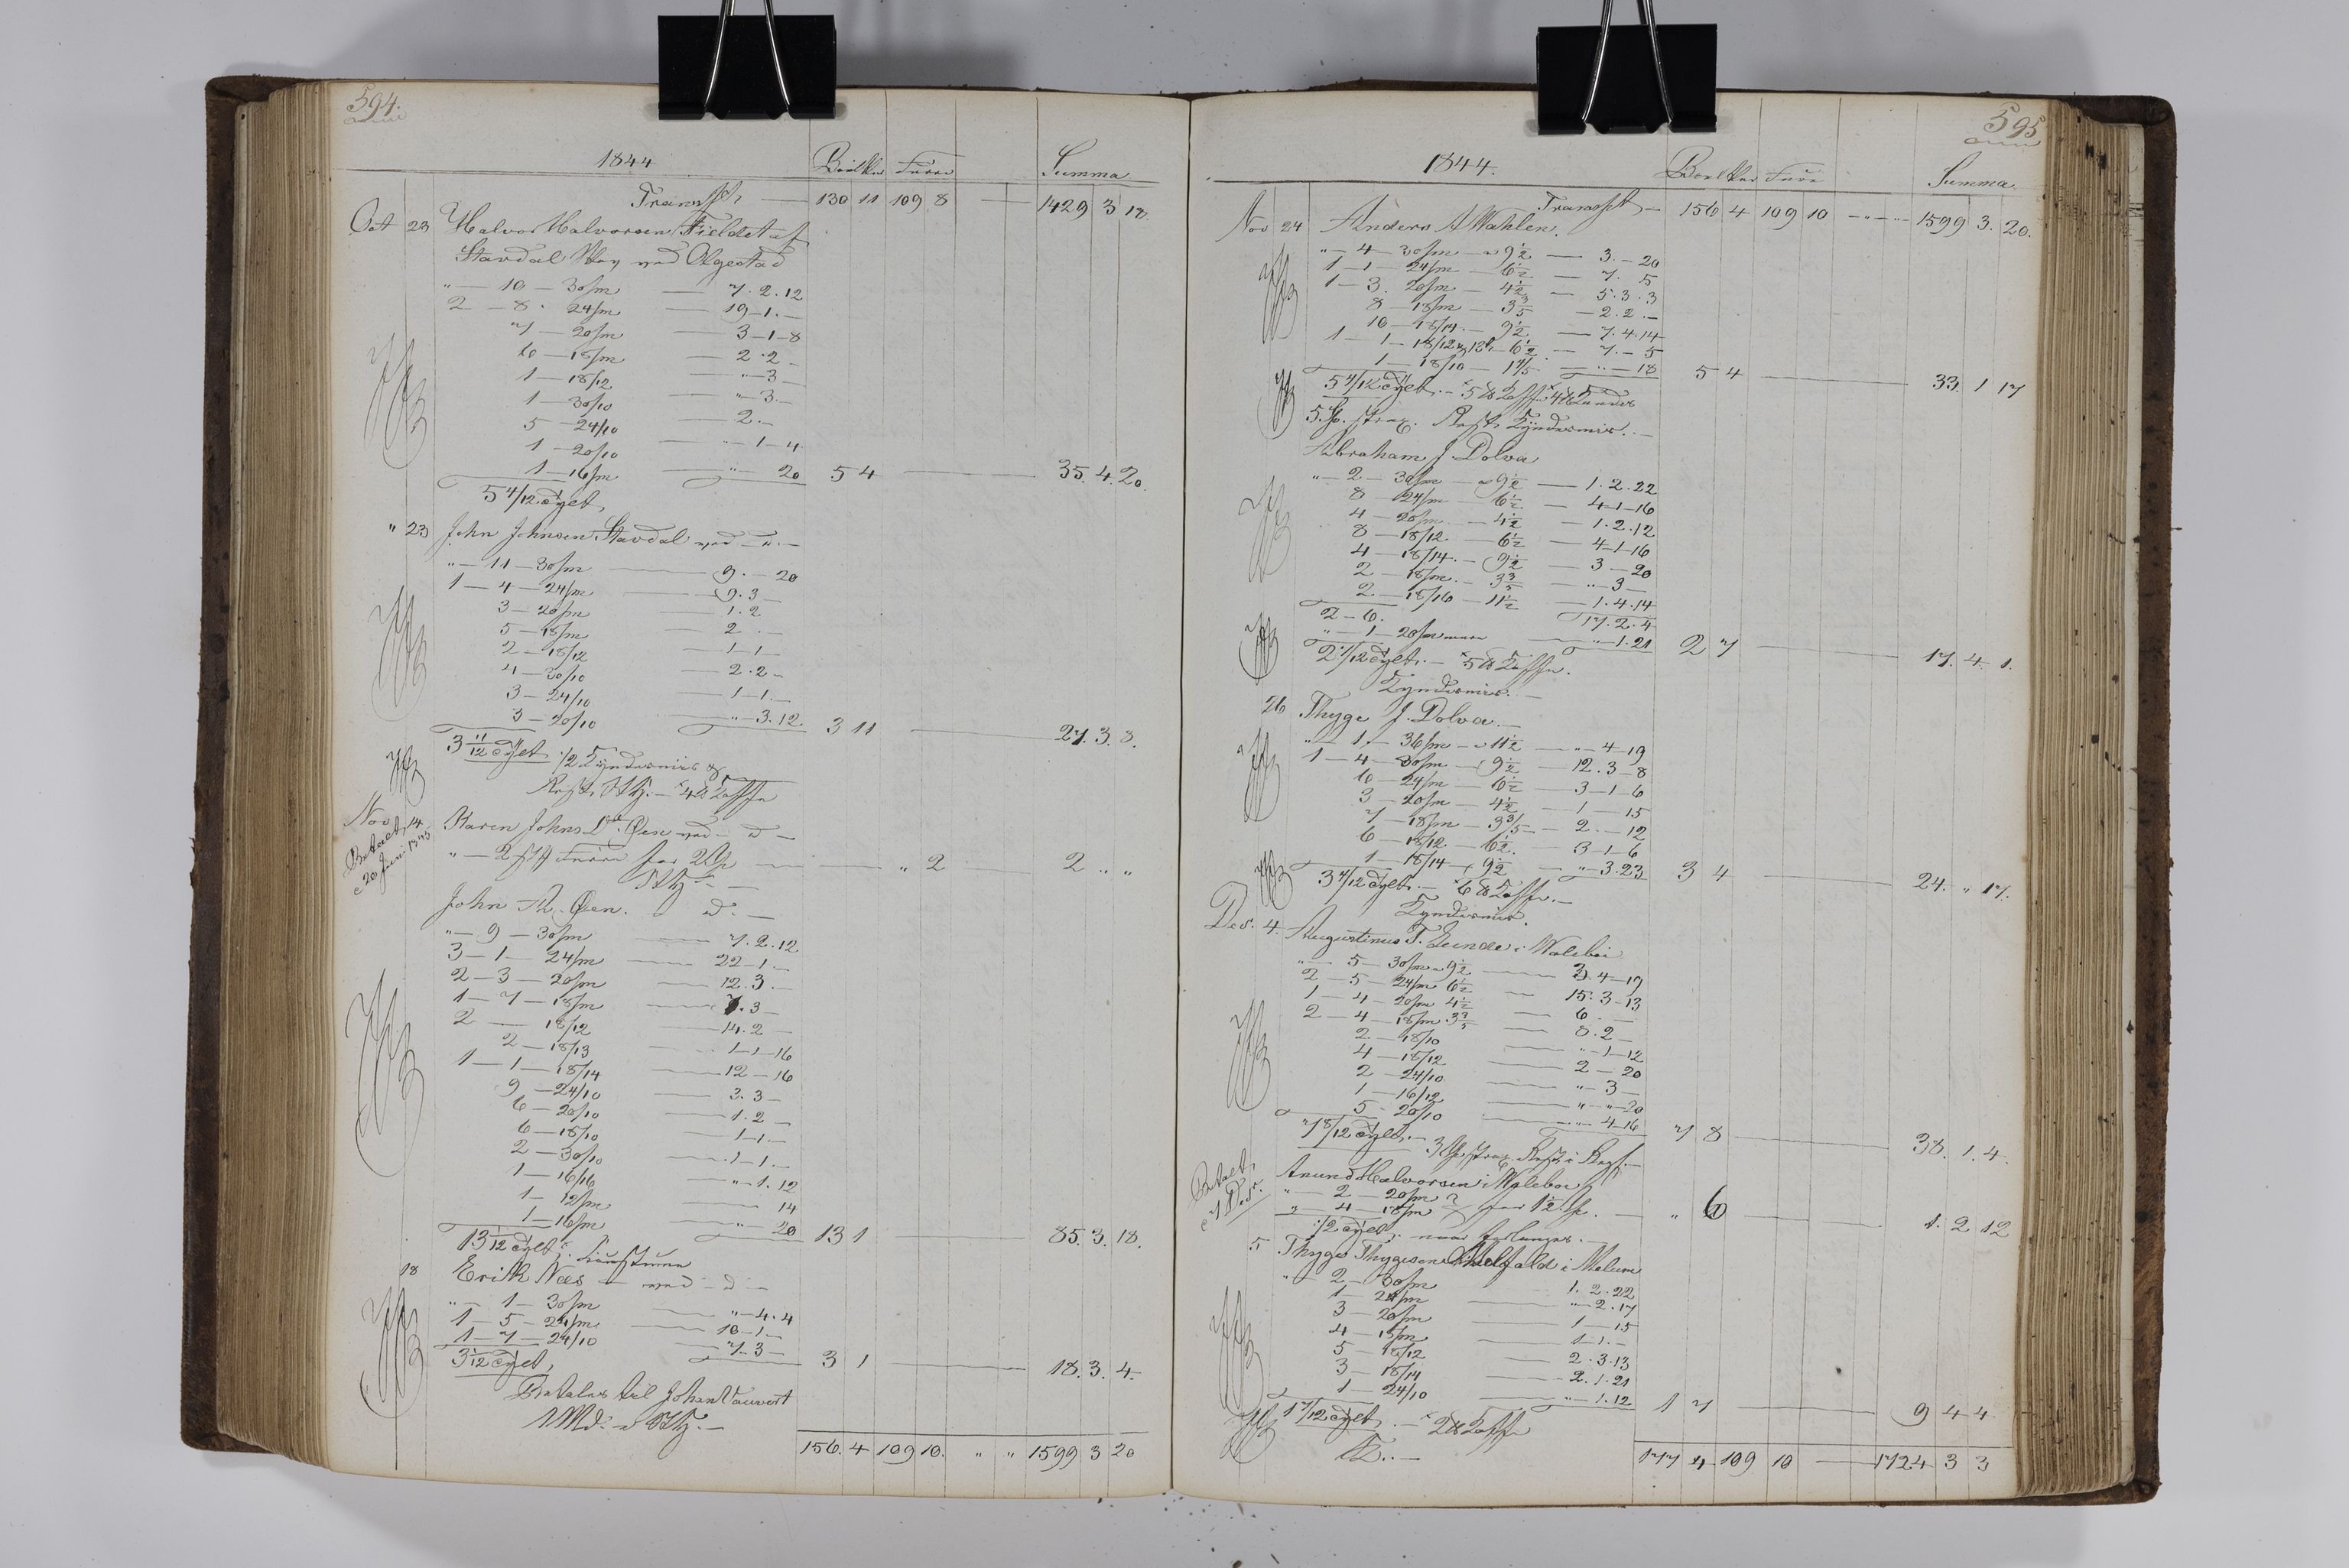 594.
1844 Summa
Transpt — 130 11 109 8 — 1429 3 18
Oct 23 Halvor Halvorsen Fieldet af
Stavdal ved Algestad
" — 10 — 30/m — 7. 2. 12
2 — 8 · 24/m — 19 — 1. —
7 — 20/m — 3 — 1 — 8
6 — 18/m — 2 · 2 —
1 — 18/12 — " — 3 —
1 — 30/10 — " — 3. —
5 — 24/10 — 2. —
1 — 20/10 — " — 1 — 4
1 — 16/m — " 20 5 4 — 35. 4. 20.
5 4/12 Tylt,
" 23 John Johnsen Stavdal ved — d. —
" — 11 — 30/m — 9. — 20
1 — 4 — 24/m — 9. 3 —
3 — 20/m — 1. 2
5 — 18/m — 2 . —
2 — 18/12 — 1 — 1 —
4 — 30/10 — 2. 2 —
3 — 24/10 — 1 — 1. —
3 — 20/10 — " — 3. 12 3 11 — 27. 3. 8.
3 11/12 Tylt. 1/2
Nov 14 Karen Johns Dtr Øen ved — d —
Betalt
20 Juni 1845
" — 2 for — " 2 2 " "
John Th. Øen. d. —
" — 9 — 30/m — 7. 2. 12
3 — 1 — 24/m — 22 — 1. —
2 — 3 — 20/m — 12. 3. —
1 — 7 — 18/m — 7. 3 —
2 — 18/12 — 14. 2 —
2 — 18/13 — 1 — 1 — 16
1 — 1 — 18/14 — 12 — 16
9 — 24/10 — 3. 3 —
6 — 20/10 — 1. 2 —
6 — 18/10 — 1 — 1 —
2 — 30/10 — 1 — 1. —
1 — 16/16 — " — 1. 12
1 — 12/m — 14
1 — 16/m — " 20 13 1 — 85. 3. 18.
13 1/12 Tylt,
18 Erik Næs — ved — d —
" — 1 — 30/m — " — 4. 4
1 — 5 — 24/m — 10 — 1 —
1 — 7 — 24/10 — 7. 3 — 3 1 — 18. 3. 4.
3 1/12 Tylt,
Betales til Johan
156. 4 109 10. " " 1599 3 20
595
1844. Summa
Transpt — 156 4 109 10 — " — " — 1599 3. 20.
Nov 24 Anders A Mahlen.
" — 4 — 30/m — a 9 1/2 — 3. — 20
1 — 1 — 24/m — 6 1/2 — 7. 5
1 — 3. 20/m — 4 1/2 — 5. 3. 3
8 — 18/m — 3 3/5 — 2. 2. —
10 — 18/14. — 9 1/2 — 7. 4. 14
1 — 1 — 18/12 — 6 1/2 — 7. — 5
1 — 18/10 — 1 4/5 — " — 18 5 4 — 33. 1 17
5 4/12 Tylt. — 5 ℔ Kaffe
Abraham J. Dolva
" — 2 — 30/m — a 9 1/2 — 1. 2. 22
8 — 24/m — 6 1/2 — 4 — 1 — 16
4 — 20/m — 4 1/2 — 1. 2. 12
8 — 18/12 — 6 1/2 — 4 — 1 — 16
4 — 18/14. — 9 1/2 — 3 — 20
2 — 18/m. — 3 3/5 — " 3 —
2 — 18/16 — 11 1/2 — 1. 4. 14
2 — 6. 17. 2. 4
" — 1 — 20/m — " — 1. 21 2 7 — 17. 4. 1.
2 7/12 Tylt. — 5 ℔ Kaffe.
26 Thyge J. Dolva. —
" — 1 — 36/m — a 11 1/2 — " — 4 — 19
1 — 4 — 30/m — 9 1/2 — 12. 3 — 8
6 — 24/m — 6 1/2 — 3 — 1 — 6
3 — 20/m — 4 1/2 — 1 — 15
7 — 18/m — 3 3/5 — 2. — 12
6 — 18/12 — 6 1/2. — 3 — 1 — 6
1 — 18/14 — 9 1/2 — " — 3. 23 3 4 — 24. " 17.
3 4/12 Tylt. — 6 ℔ Kaffe. —
Des. 4. Augustinus T. Lunde i Malebøe
" — 5 — 30/m a 9 1/2 — 3. 4 — 17
2 — 5 — 24/m 6 1/2 — 15. 3 — 13
1 — 4 — 20/m 4 1/2 — 6 . —
2 — 4 — 18/m 3 3/5 — 8. 2 —
2 — 18/10 — " — 1 — 12
4 — 18/12 — 2 — 20
2 — 24/10 — " — 3 —
1 — 16/12 — " — " — 20
5 — 20/10 — " — 4 — 16 7 8 — 38. 1. 4.
7 8/12 Tylt. —
Betalt
7 Des.
Amund Halvorsen i Malebøe
" — 2 — 20/m
" — 4 — 18/m for 1 1/2 — " 6 — 1. 2 12
1/2 Tylt, naar forlanges. —
5 Thyge Thygesen i Melum
" — 2 — 30/m 1. 2. 22
1 — 24/m — " — 2. 17
3 — 20/m — 1 — 15
4 — 18/m — 1 — 1. —
5 — 18/12 — 2. 3. 13
3 — 18/14 — 2. 1. 21
1 — 24/10 — " — 1. 12 1 7 — 9 4 4
1 7/12 Tylt. — 2 ℔ Kaffe
177 4 109 10 — 1724 3 3